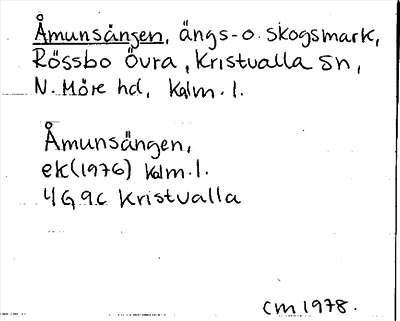 Åmunsängen, ängs- o. skogsmark,
Rössbo Övra, Kristvalla sn,
N. Möre hd, Kalm. l.
Åmunsängen,
ek (1976) Kalm. l.
4G 9c Kristvalla
CM 1978.